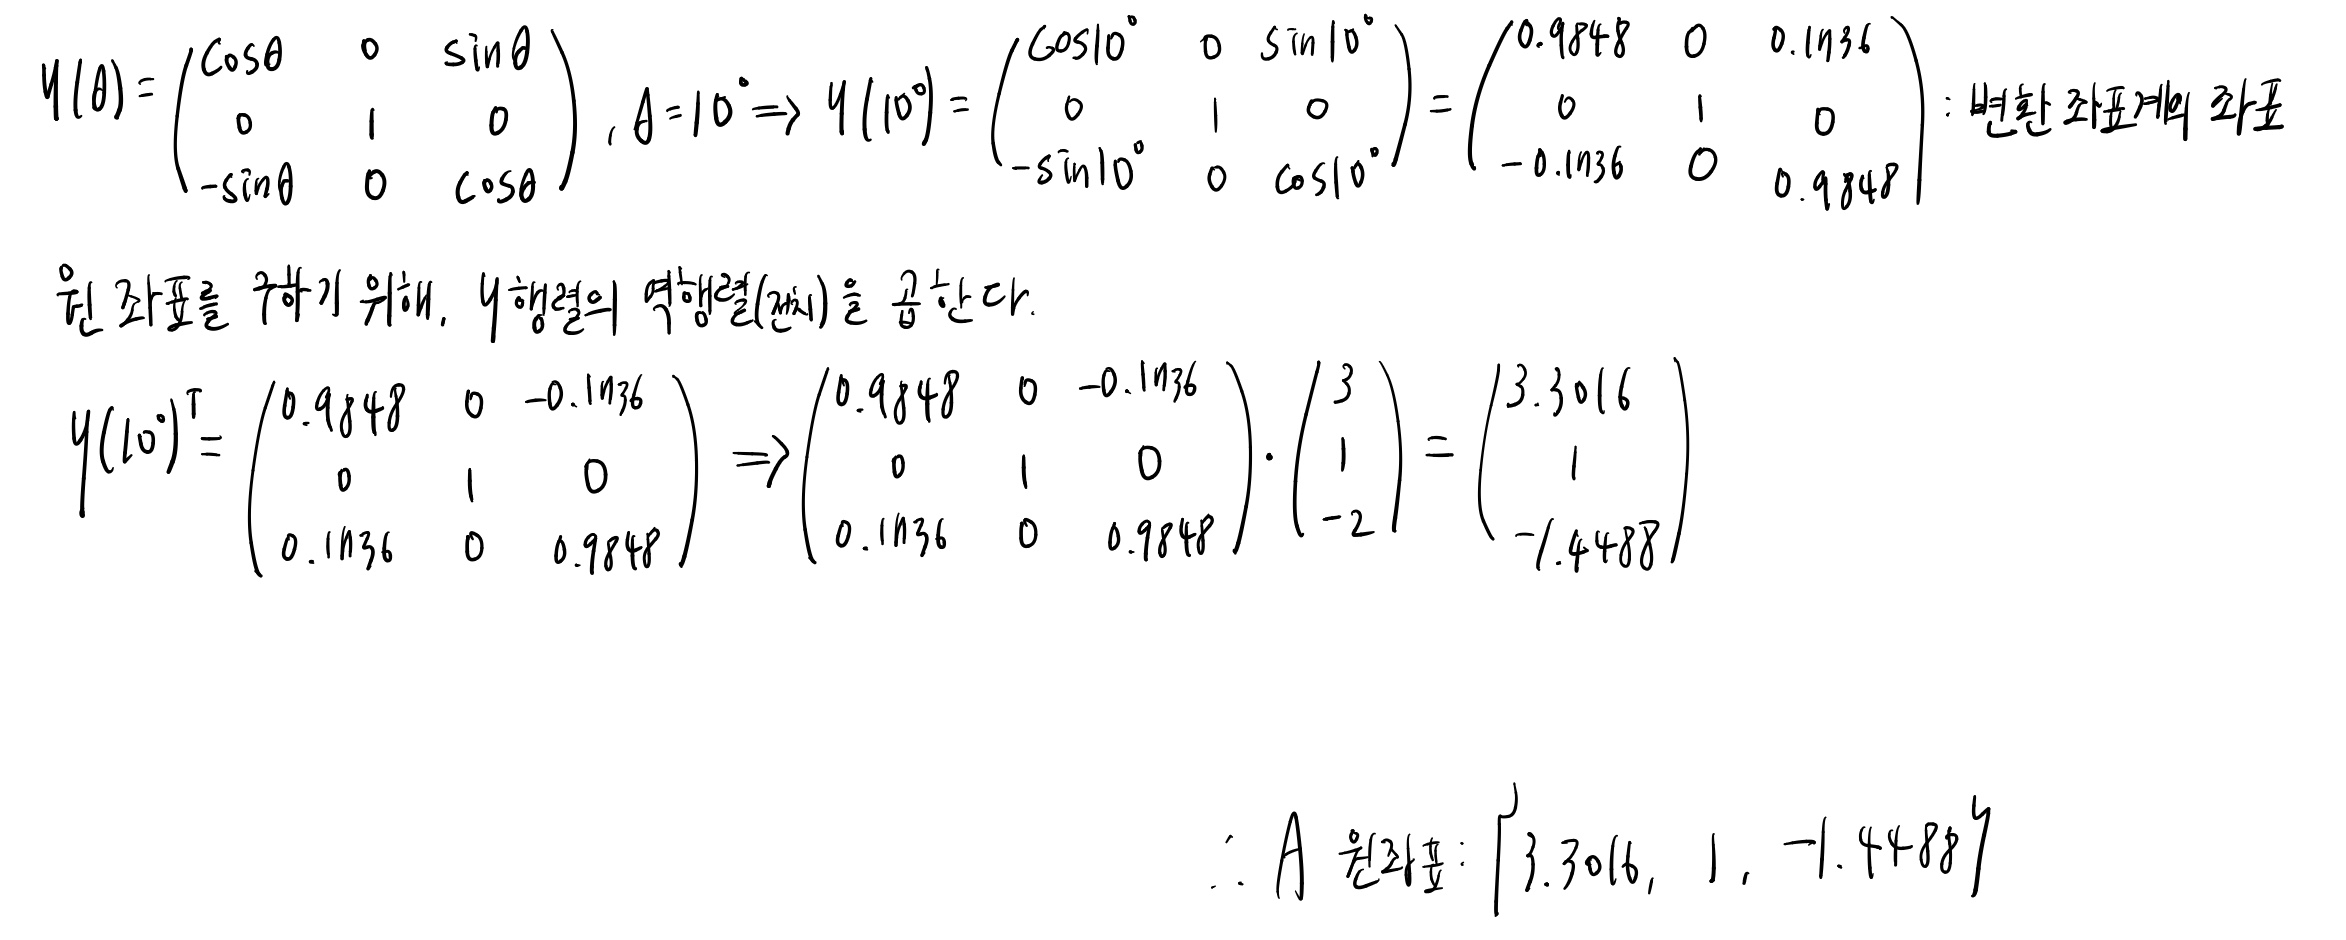 Y(θ) = (cosθ 0 sinθ
0 1 0
-sinθ 0 cosθ), θ=10° => Y(10°) = (cos10° 0 sin10°
0 1 0
-sin10° 0 cos10°) = (0.9848 0 0.1736
0 1 0
-0.1736 0 0.9848) : 변환 좌표계의 좌표
원 좌표를 구하기 위해, Y행렬의 역행렬(전치)을 곱한다.
Y(10°)^T = (0.9848 0 -0.1736
0 1 0
0.1736 0 0.9848) => (0.9848 0 -0.1736
0 1 0
0.1736 0 0.9848) · (3
1
-2) = (3.3016
1
-1.4488)
∴ A 원좌표: {3.3016, 1, -1.4488}